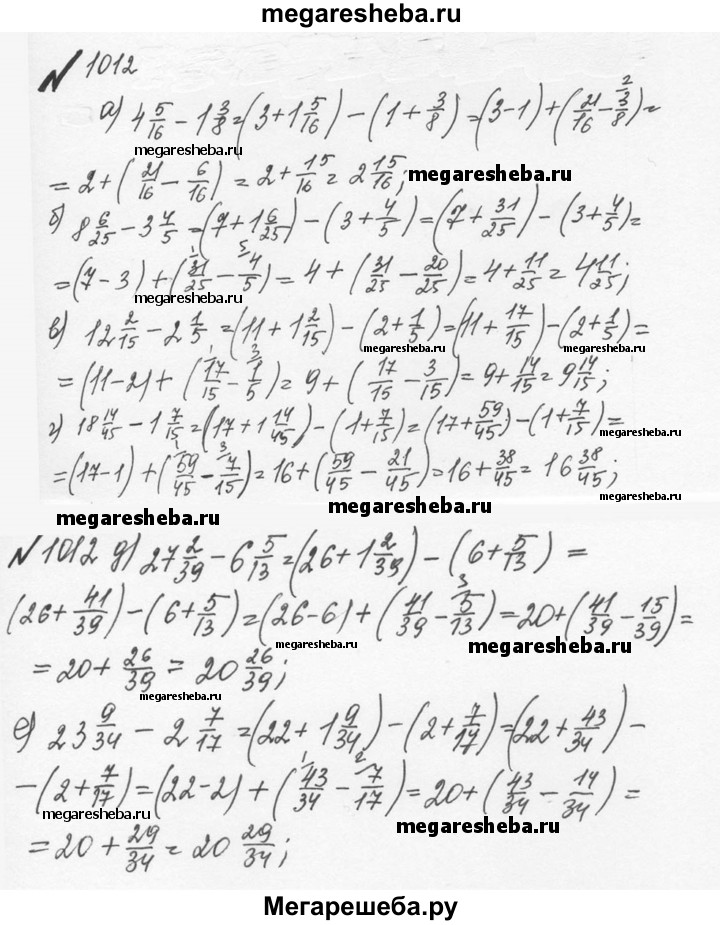 megaresheba.ru
№ 1012
а) 4 5/16 − 1 3/8 = (3 + 1 5/16) − (1 + 3/8) = (3 − 1) + (21/16 − 3/8) =
megaresheba.ru megaresheba.ru
= 2 + (21/16 − 6/16) = 2 + 15/16 = 2 15/16; megaresheba.ru
б) 8 6/25 − 3 4/5 = (7 + 1 6/25) − (3 + 4/5) = (7 + 31/25) − (3 + 4/5) =
megaresheba.ru
= (7 − 3) + (31/25 − 4/5) = 4 + (31/25 − 20/25) = 4 + 11/25 = 4 11/25;
megaresheba.ru
в) 12 2/15 − 2 1/5 = (11 + 1 2/15) − (2 + 1/5) = (11 + 17/15) − (2 + 1/5) =
megaresheba.ru megaresheba.ru
= (11 − 2) + (17/15 − 1/5) = 9 + (17/15 − 3/15) = 9 + 14/15 = 9 14/15;
г) 18 14/45 − 1 7/15 = (17 + 1 14/45) − (1 + 7/15) = (17 + 59/45) − (1 + 7/15) =
megaresheba.ru megaresheba.ru
= (17 − 1) + (59/45 − 7/15) = 16 + (59/45 − 21/45) = 16 + 38/45 = 16 38/45;
megaresheba.ru megaresheba.ru
№ 1012 д) 27 2/39 − 6 5/13 = (26 + 1 2/39) − (6 + 5/13) =
(26 + 41/39) − (6 + 5/13) = (26 − 6) + (41/39 − 5/13) = 20 + (41/39 − 15/39) =
megaresheba.ru megaresheba.ru
= 20 + 26/39 = 20 26/39;
megaresheba.ru
е) 23 9/34 − 2 7/17 = (22 + 1 9/34) − (2 + 7/17) = (22 + 43/34) −
megaresheba.ru
− (2 + 7/17) = (22 − 2) + (43/34 − 7/17) = 20 + (43/34 − 14/34) =
megaresheba.ru megaresheba.ru
= 20 + 29/34 = 20 29/34;
Мегарешеба.ру